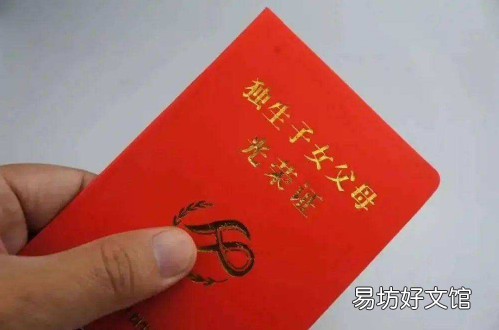 独生子女父母
光荣证
易坊好文馆